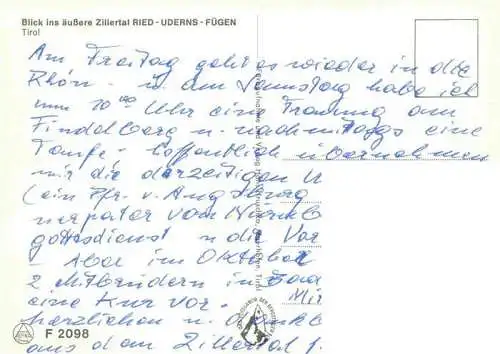 Blick ins äußere Zillertal RIED - UDERNS - FÜGEN
Tirol
Am Freitag geht es wieder in die
Rhön - u. am Samstag habe ich
um 10 00 Uhr eine Trauung am
Findelberg u. nachmittags eine
Taufe - hoffentlich übernehmen
mir die derzeitigen U
(ein Pfr. v. Augsburg
pater vom
gottesdienst u die Vor
Aber im Oktober
2 Mitbrüdern in Bad
eine Kur vor. Mit
herzlichen u.
aus dem Zillertal
F 2098